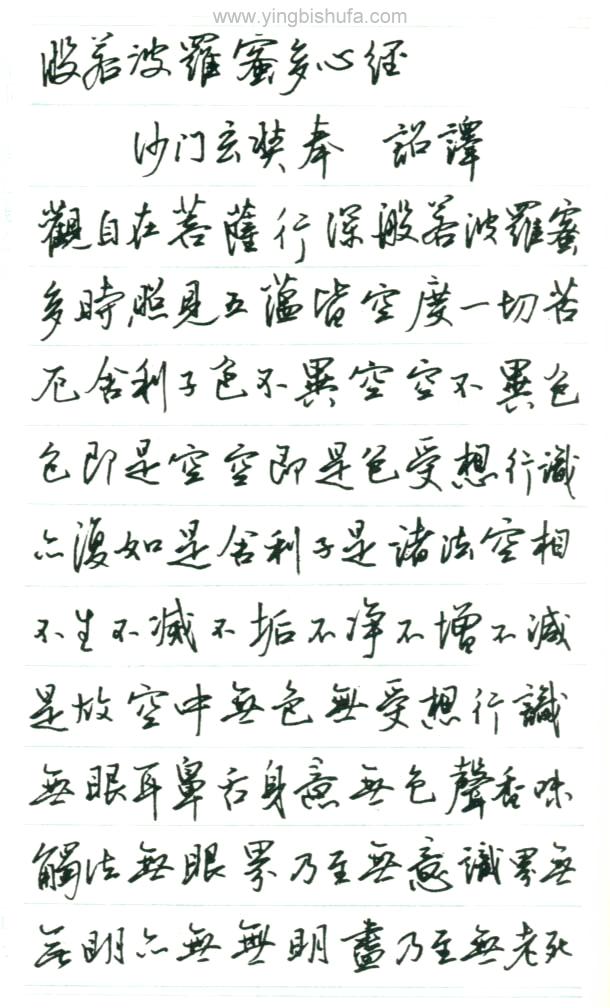 www.yingbishufa.com
般若波羅蜜多心經
沙门玄奘奉 詔譯
觀自在菩薩行深般若波羅蜜
多時照見五蕴皆空度一切苦
厄舍利子色不異空空不異色
色即是空空即是色受想行識
亦復如是舍利子是諸法空相
不生不滅不垢不净不增不減
是故空中無色無受想行識
無眼耳鼻舌身意無色聲香味
觸法無眼界乃至無意識界無
無明亦無無明盡乃至無老死